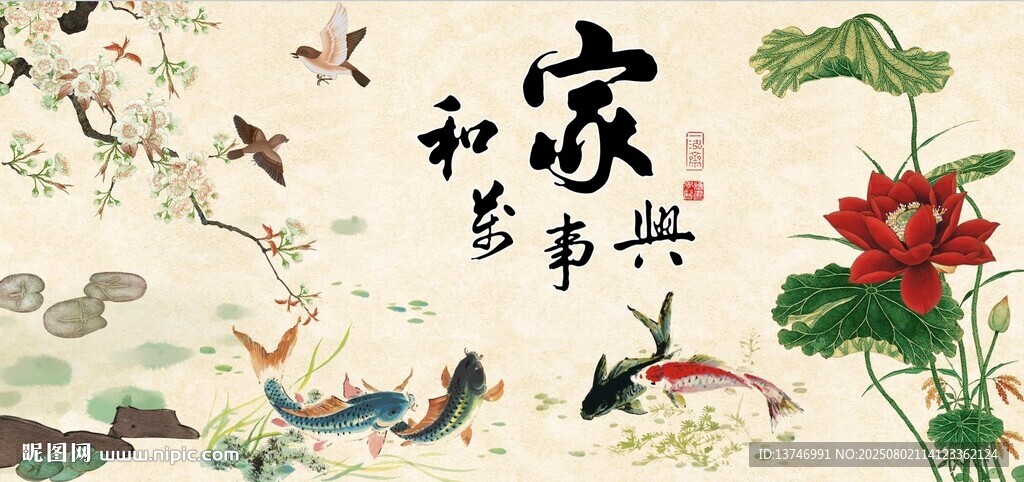 家和萬事興
一泓齋
昵图网 www.nipic.com
ID:13746991 NO:20250802114123362124